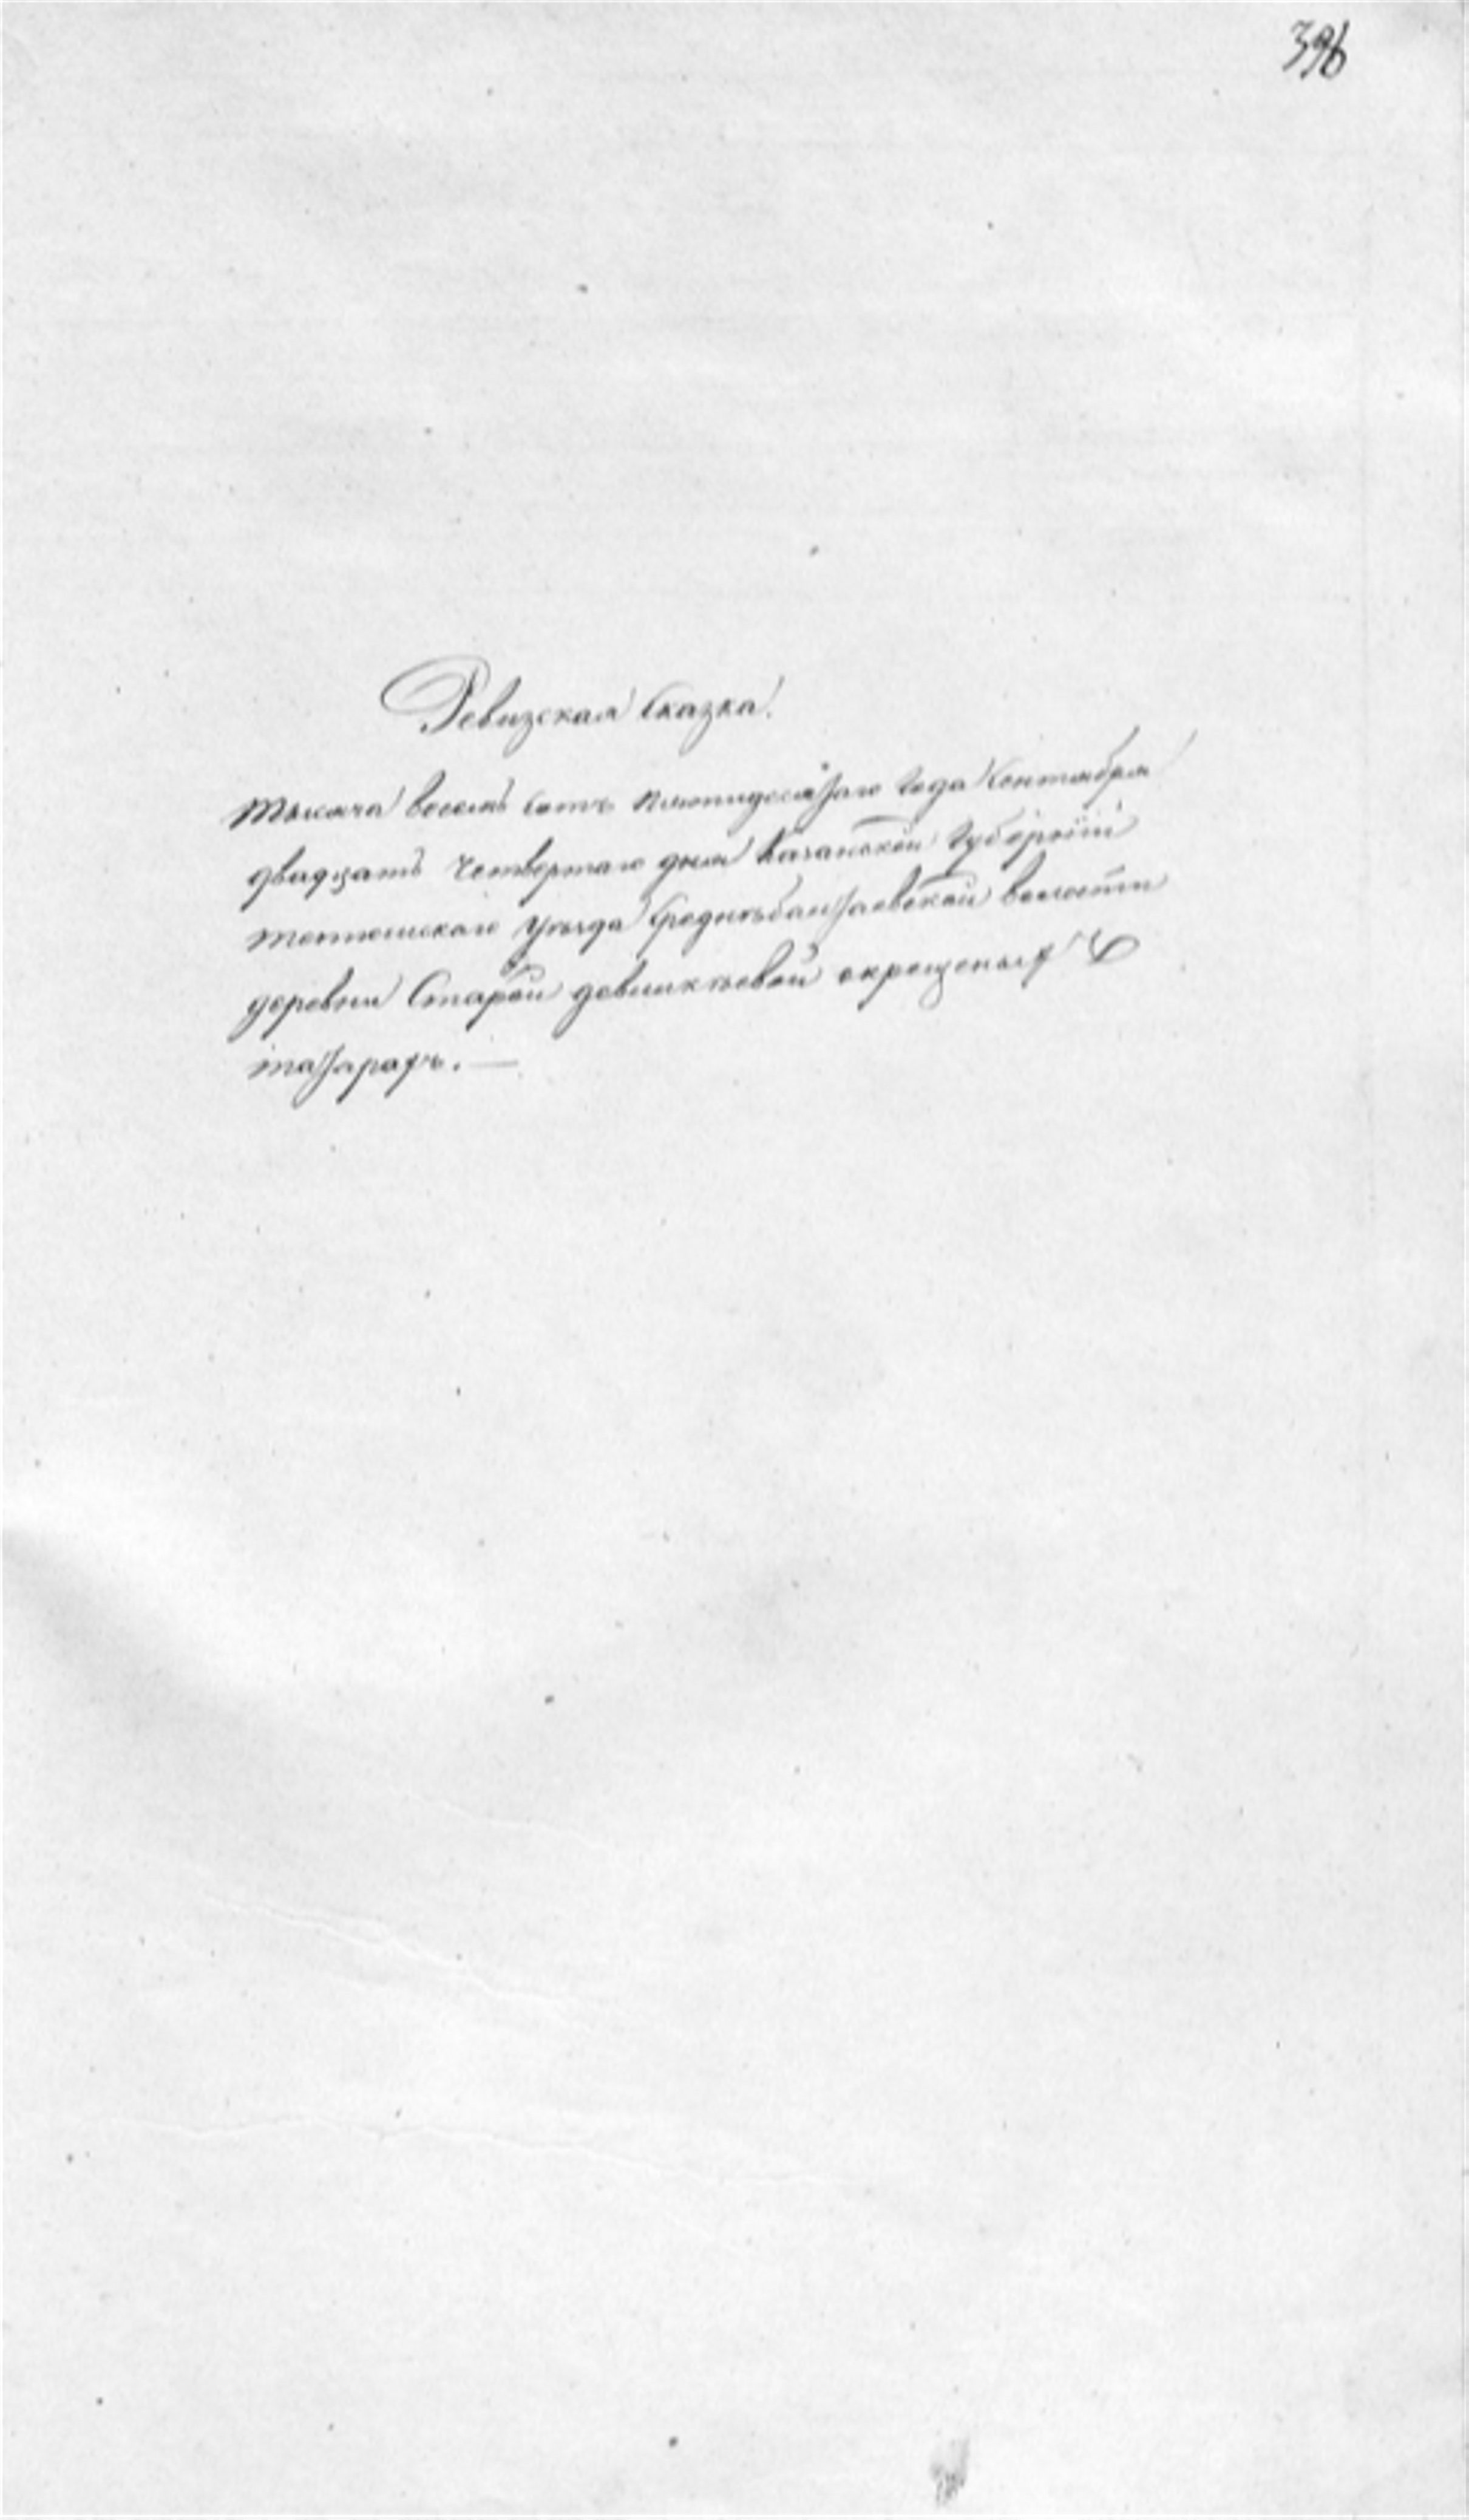 396
Ревизская сказка.
тысяча восемь сотъ пятидесятаго года сентября
двадцать четвертаго дня казанской губернiи
тетюшскаго уѣзда среднебалтаевской волости
деревни Старой окрещеныхъ
татарахъ. —